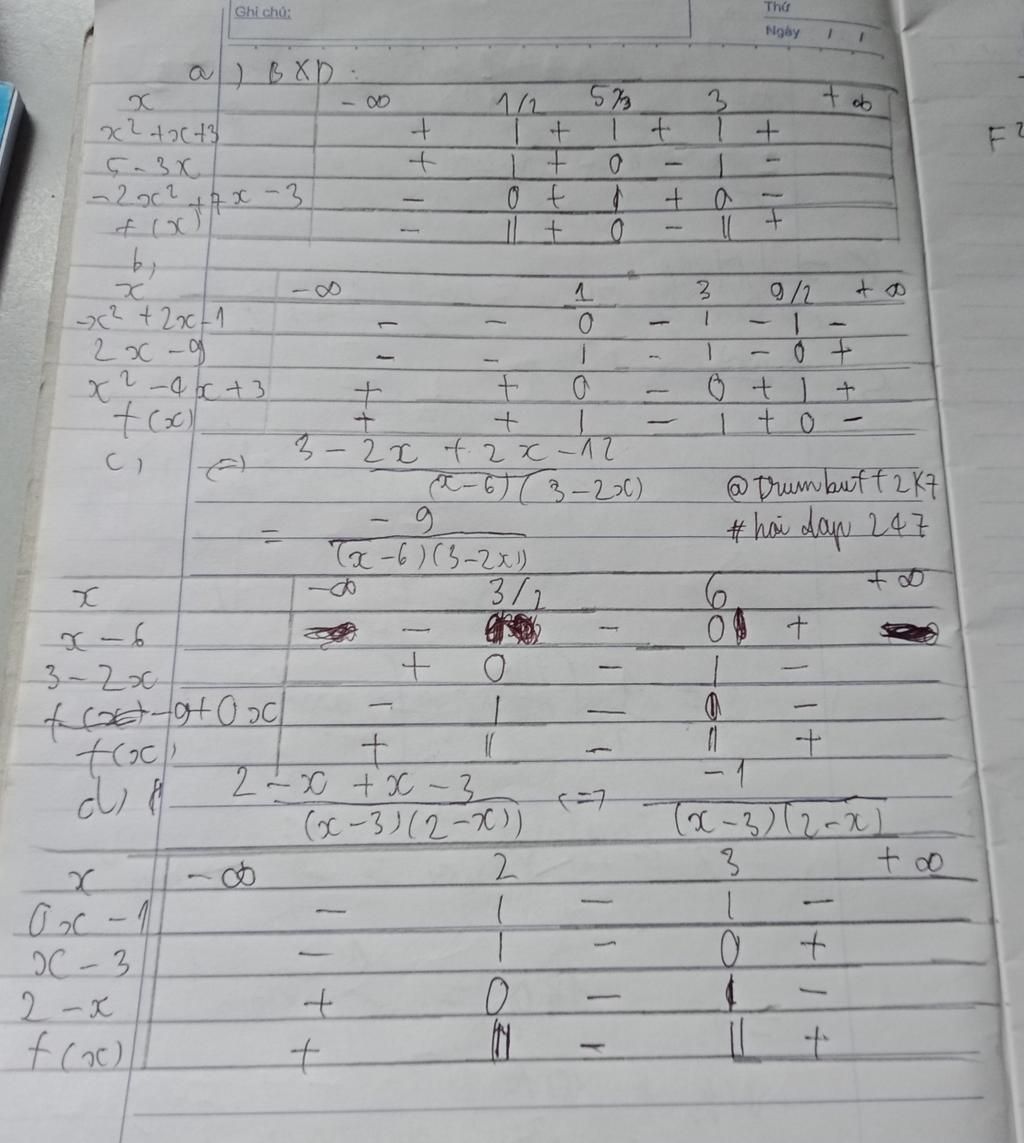 Ghi chú:
Thứ
Ngày / /
a) BXD:
x -∞ 1/2 5/3 3 +∞
x² + x + 3 + | + | + | +
5 - 3x + | + 0 - | -
-2x² + 7x - 3 - 0 + | + 0 -
f(x) - || + 0 - || +
b,
x -∞ 1 3 9/2 +∞
-x² + 2x - 1 - - 0 - | - | -
2x - 9 - - | - | - 0 +
x² - 4x + 3 + + 0 - 0 + | +
f(x) + + | - | + 0 -
c, (=) 3 - 2x + 2x - 12
(x-6)(3-2x)
@Trumbuff2k7
= -9
(x-6)(3-2x))
# hoi dap 247
x -∞ 3/2 6 +∞
x - 6 - - 0 +
3 - 2x + 0 - | -
f(x) -9+0x - | - 0 -
f(x) + || - || +
d) 2 - x + x - 3 <=> -1
(x-3)(2-x)) (x-3)(2-x)
x -∞ 2 3 +∞
0x - 1 - | - | -
x - 3 - | - 0 +
2 - x + 0 - | -
f(x) + || - || +
F²